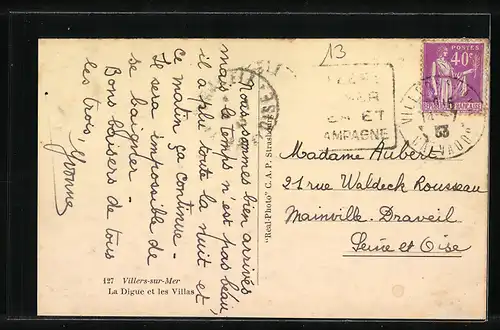 Nous sommes bien arrivés
mais le temps n'est pas beau,
il a plu toute la nuit et
ce matin ça continue -
Il sera impossible de
se baigner -
Bons baisers de tous
les trois
Yvonne
127 Villers-sur-Mer
La Digue et les Villas
"Real-Photo" C. A. P. Strasbourg
13
ET
AMPAGNE
CALVADOS
POSTES
40c
Madame Aubert
21 rue Waldeck Rousseau
Mainville-Draveil
Seine et Oise